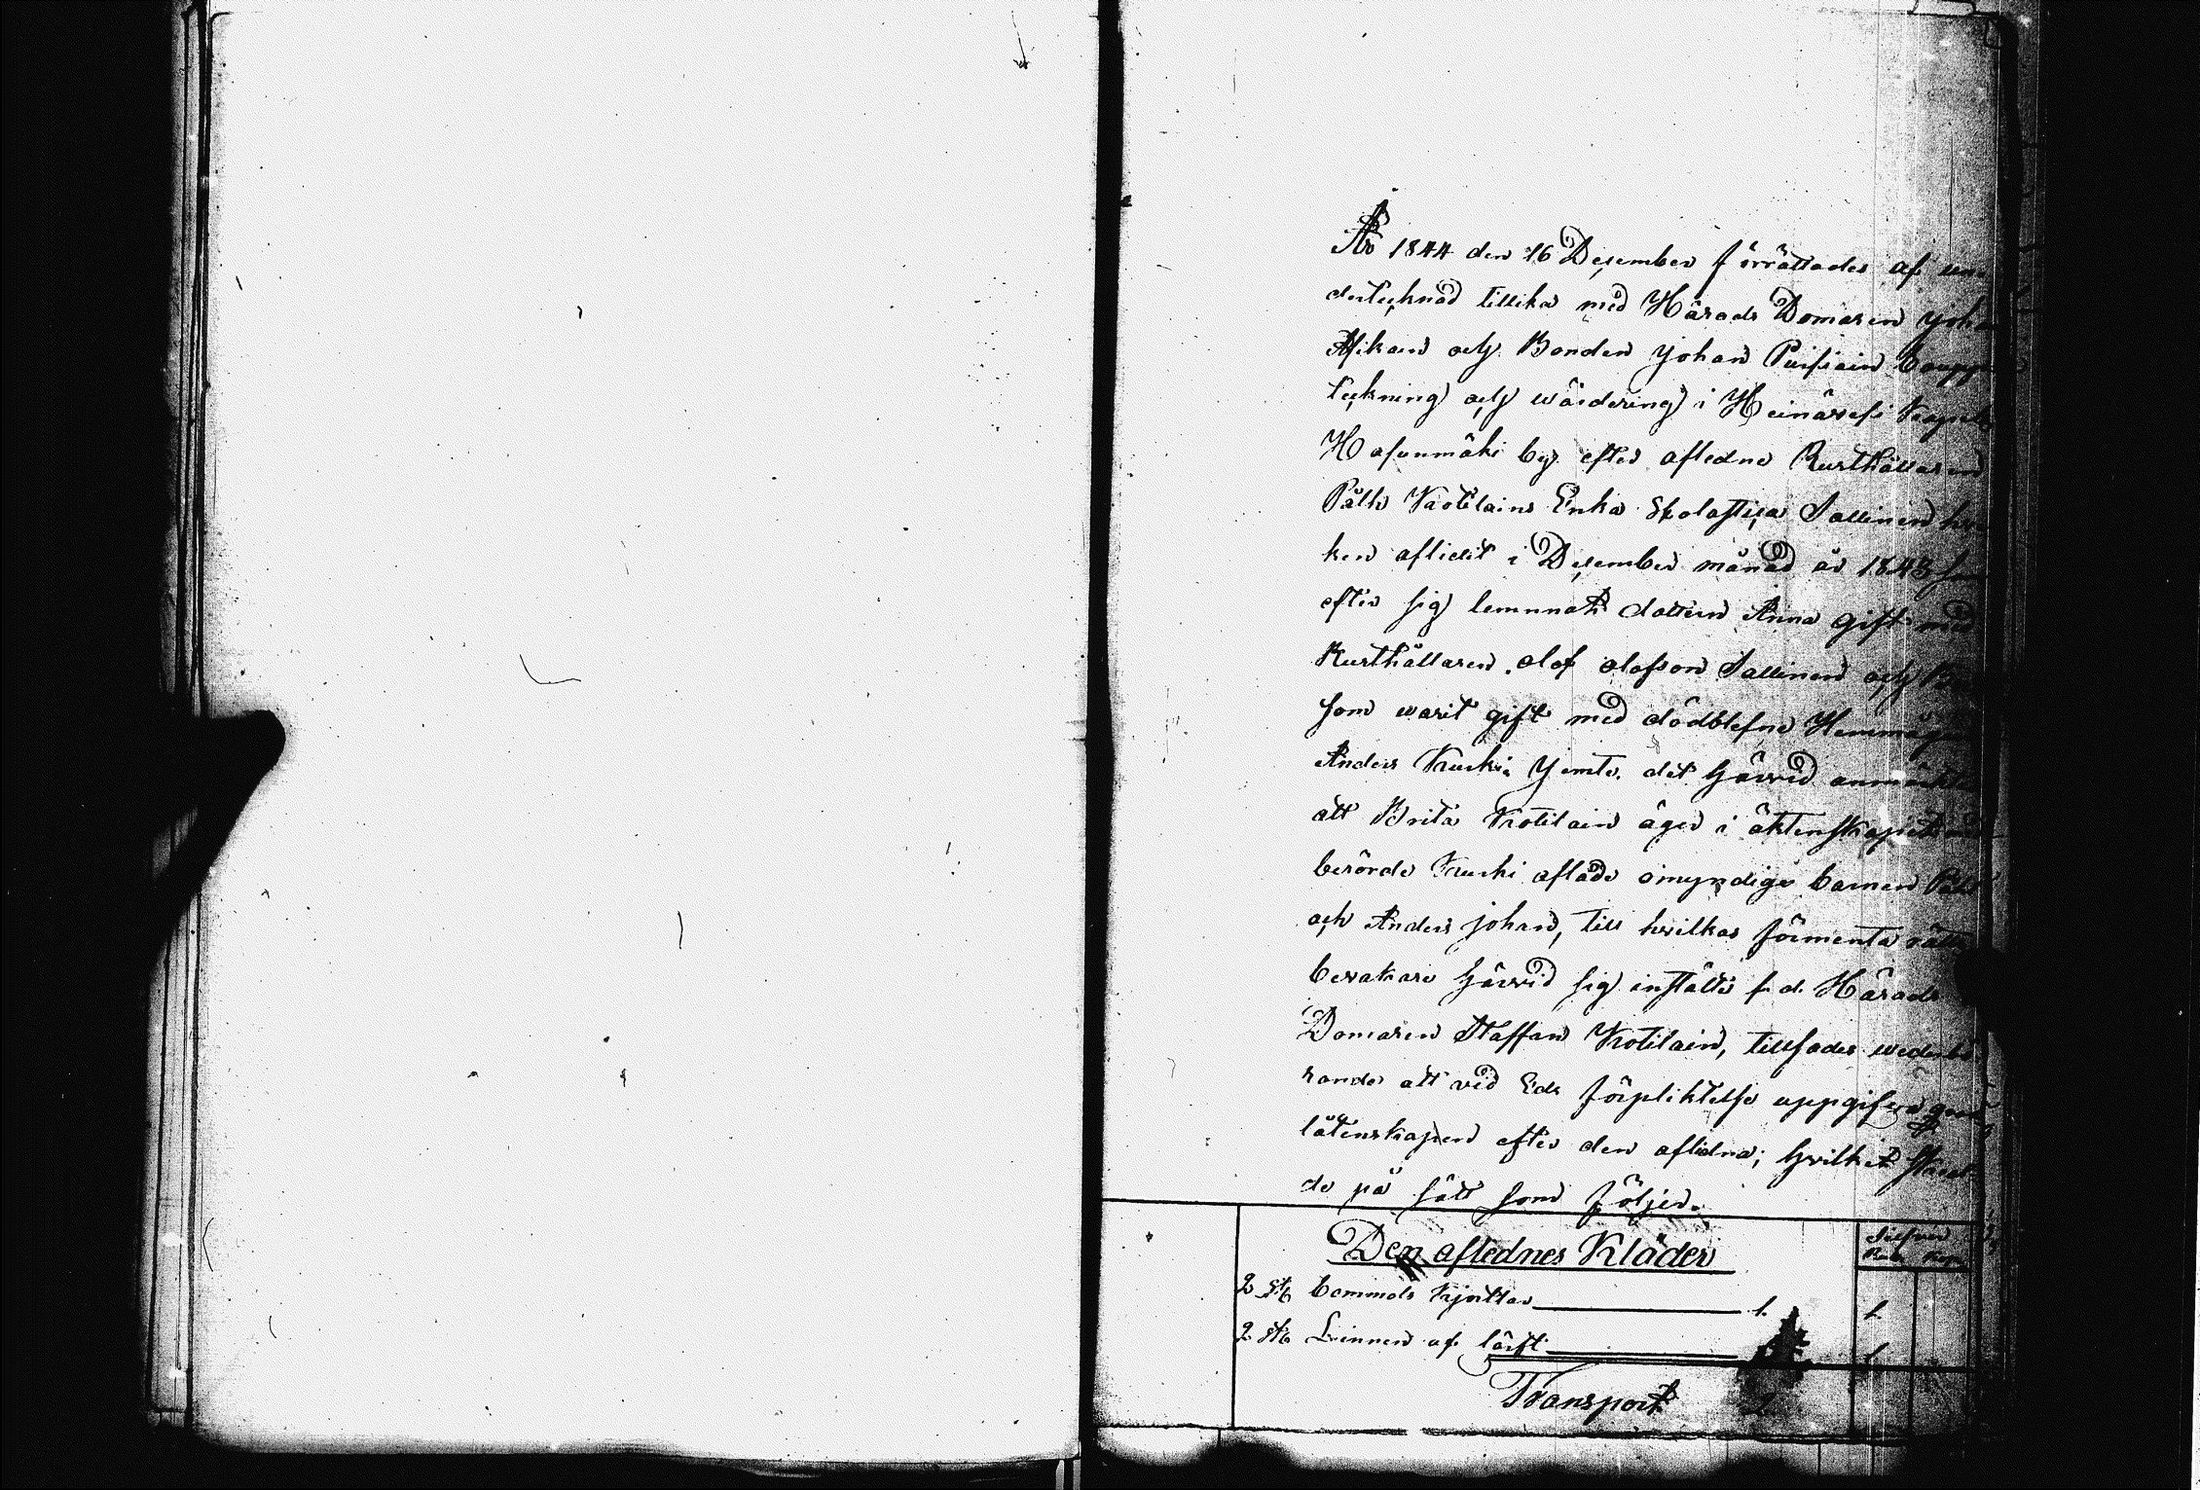 År 1844 den 16 Deçember förrättades af un-
derteçknad tillika med Härads Domaren Joh
och Bonden Johan Puisiain Boupp
teçkning och wärdering i Heinäwesi Kapell
Hasunmäki by efter afledno Rusthållaren
Påhls Kotilains Enka Skolastiça Sallinen hwi
ken aflidit i Deçember månad år 1843 som
efter sig lemnnat dottern Anna gift med
Rusthållaren Olof Olofson Sallinen och
som warit gift med dödblefne Hemmag
Anders Kuuki Jemte det härvid anmärktes
att Brita Kotilain äger i äktenskapet
berörde Kuuki aflade omyndige barnen Påhl
och Anders Johan, till hvilkas förmenta rätts
bevakare härvid sig instälte f. d. Härads
Domaren Staffan Kotilain, tillsades wederbö
rande att vid Eds förpliktelse uppgifva qvar
låtenskapen efter den aflidna; hvilket sked
de på sätt som följer.
Den aflednes Kläder
Silfver
Rub. Kop.
2 st. bommols kjortlar 1. 1
2 st. Linnen af lärft 1
Transport 2